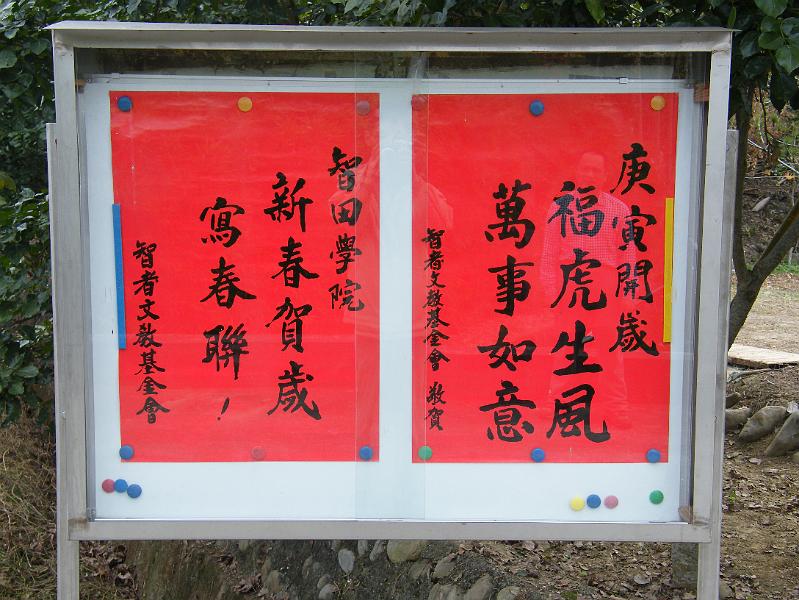 庚寅開歲
福虎生風
萬事如意
智者文教基金會 敬賀
智田學院
新春賀歲
寫春聯！
智者文教基金會